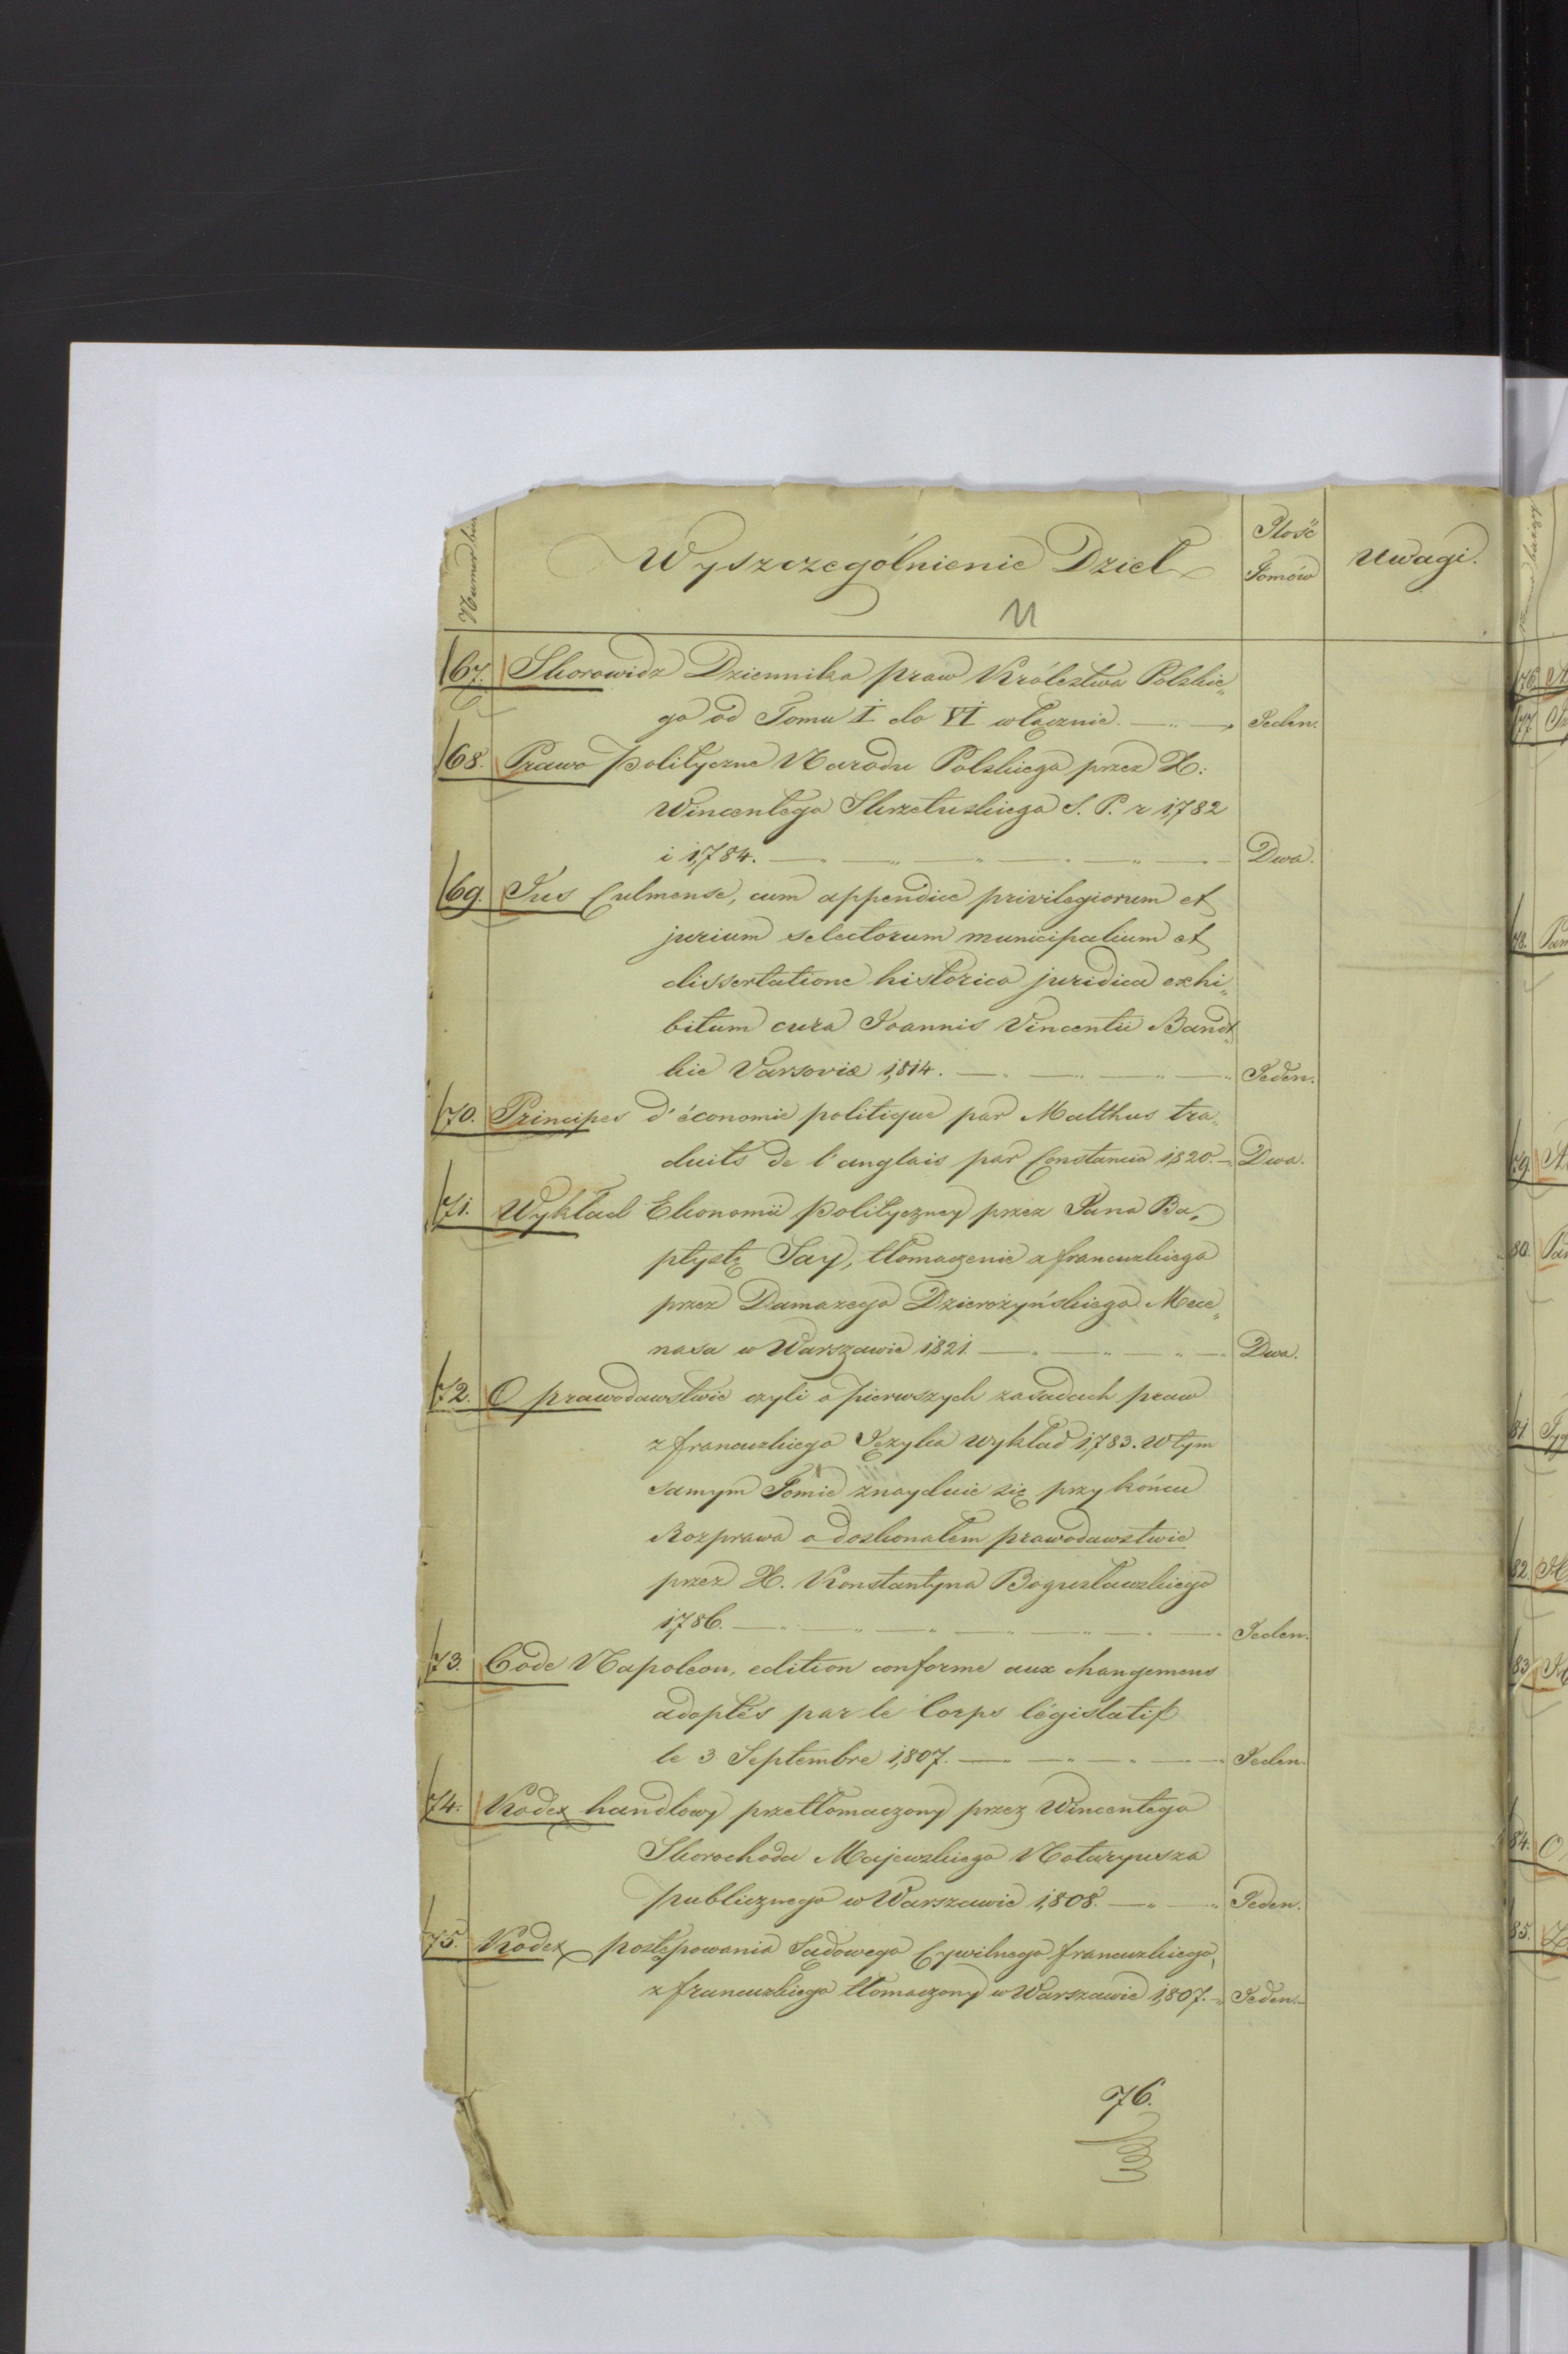 Numer bie
Wyszczególnienie Dzieł
Ilość
Tomów
Uwagi.
11
67. Skorowidz Dziennika praw Królestwa Polskie„
go od Tomu I do VI włącznie. Jeden.
68. Prawo polityczne Narodu Polskiego przez X:
Wincentego Skrzetuskiego S. P. r 1,782
i 1,784. Dwa.
69. Jus Culmense, cum appendice privilegiorum et
jurium selectorum municipalium et
dissertatione historico juridica exhi„
bitum cura Joannis Vincentii Bandt„
kie Varsoviæ 1,814. Jeden.
70. Principes d'économie politique par Malthus tra„
duits de l'anglais par Constancio 1,820. Dwa.
71. Wykład Ekonomii polityczney przez Jana Ba„
ptystę Say, tłomaczenie z francuzkiego
przez Damazego Dzierożyńskiego Mece„
nasa w Warszawie 1,821. Dwa.
72. O prawodawstwie czyli o pierwszych zasadach praw
z francuzkiego Języka wykład 1,783. W tym
samym Tomie znayduie się przy końcu
Rozprawa o doskonałem prawodawstwie
przez X. Konstantyna Bogusławskiego
1,786. Jeden.
73. Code Napoleon, edition conforme aux changemens
adoptés par le Corps législatif
le 3 Septembre 1,807. Jeden.
74. Kodex handlowy przetłomaczony przez Wincentego
Skorochoda Majewskiego Notaryusza
publicznego w Warszawie 1,808. Jeden.
75. Kodex postępowania Sądowego Cywilnego francuzkiego,
z francuzkiego tłomaczony w Warszawie 1,807. Jeden.
76.
76
77
78. Pam
79.
80. Pam
81
82.
83
84. O
85.